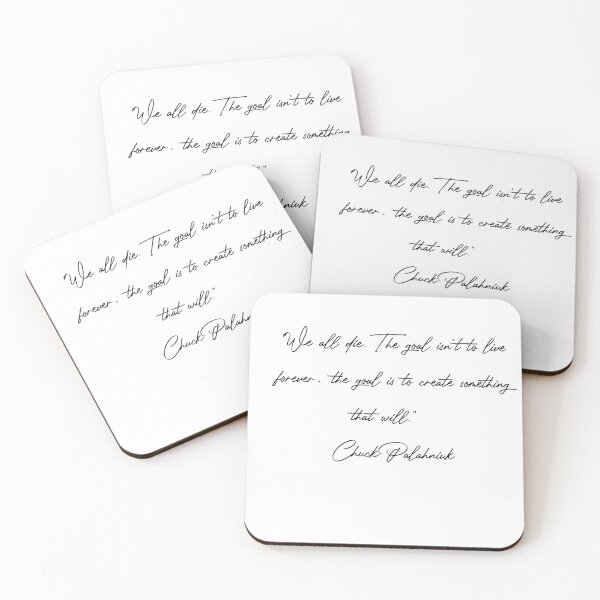 We all die. The goal isn't to live
forever, the goal is to create something
Palahniuk
We all die. The goal isn't to live
forever, the goal is to create something
that will."
Chuck Palahniuk
We all die. The goal isn't to live
forever, the goal is to create something
that will."
Chuck Palahniuk
We all die. The goal isn't to live
forever, the goal is to create something
that will."
Chuck Palahniuk